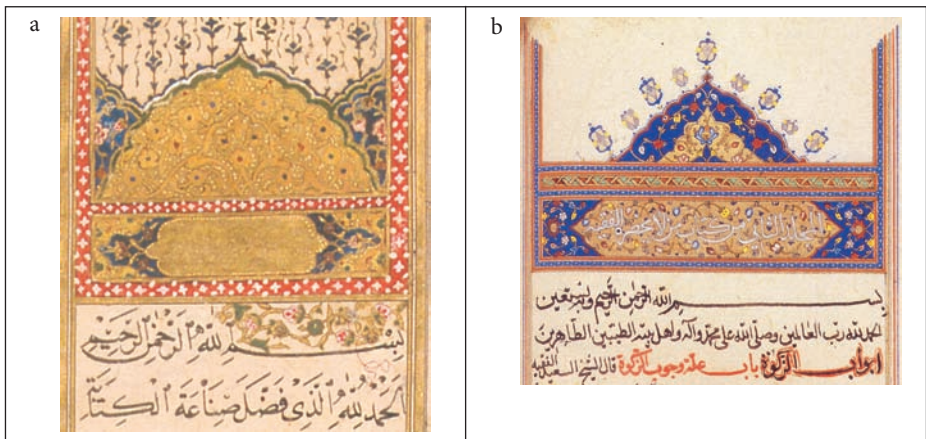 a
بسم الله الرحمن الرحيم
الحمد لله الذي فضل صناعة الكتابة
b
المجلد الثاني من كتاب من لا يحضره الفقيه
بسم الله الرحمن الرحيم وبه نستعين
الحمد لله رب العالمين وصلى الله على محمد وآله واهل بيته الطيبين الطاهرين
ابواب الزكوة باب علة وجوب الزكوة قال الشيخ السعيد الفقيه